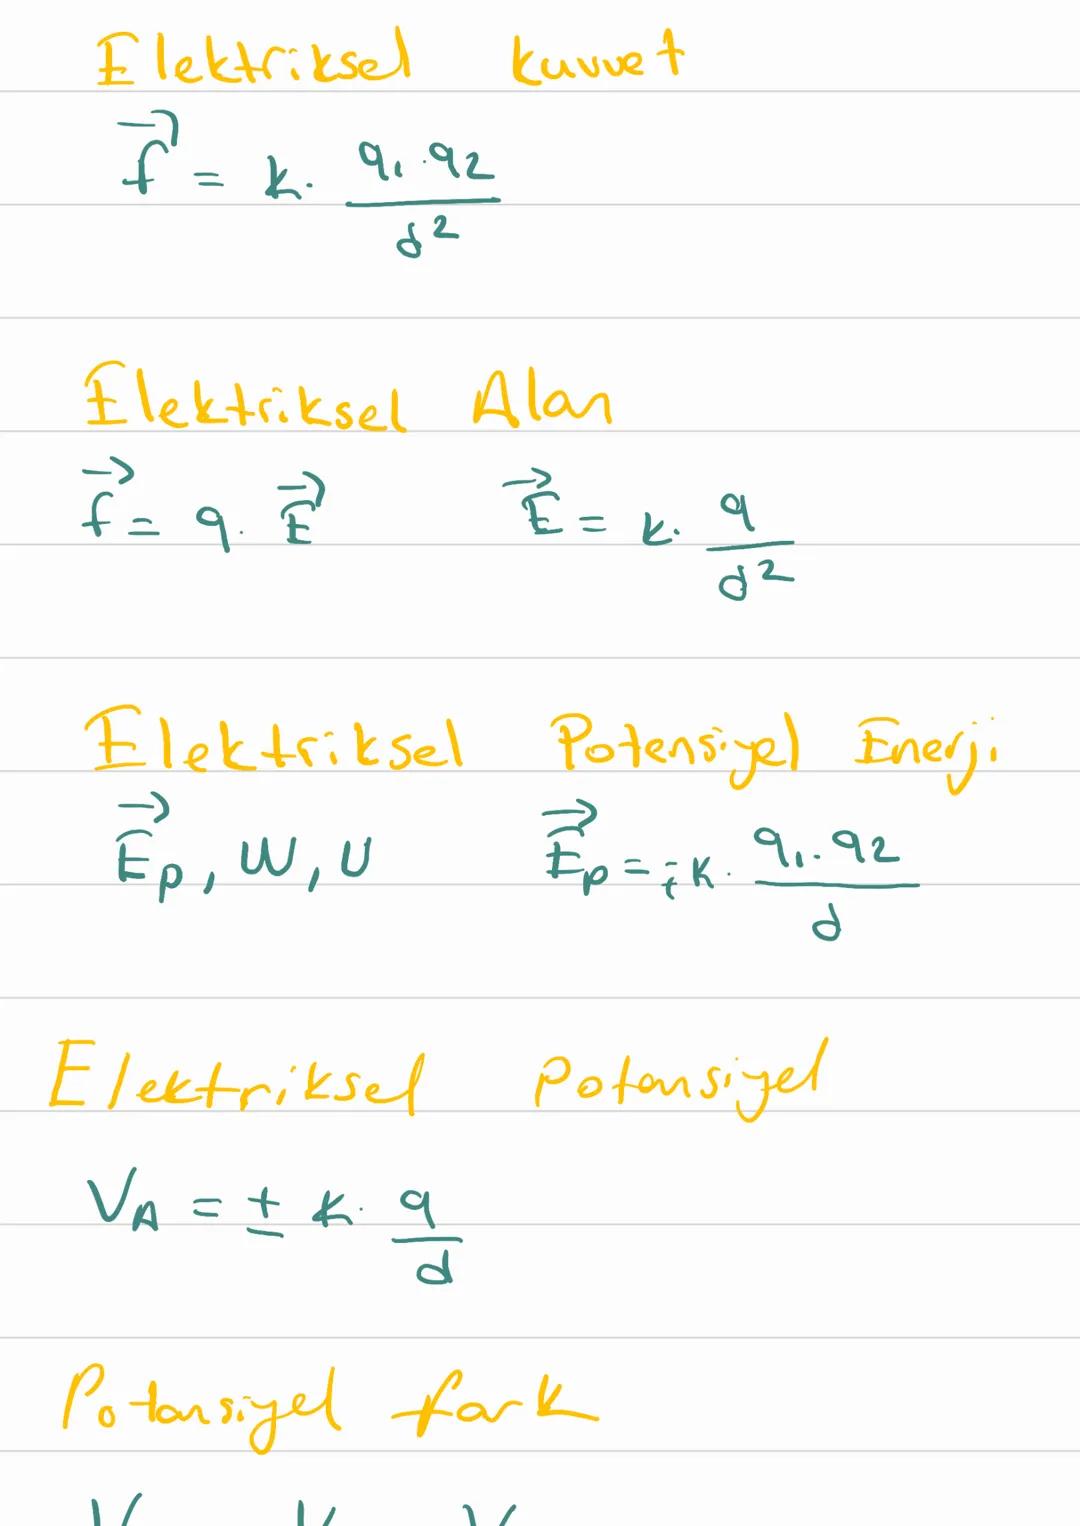 Elektriksel kuvvet
f⃗ = k. q₁.q₂ / d²
Elektriksel Alan
f⃗ = q. E⃗    E⃗ = k. q / d²
Elektriksel Potensiyel Enerji
E⃗p, W, U    E⃗p = ±k. q₁.q₂ / d
Elektriksel Potansiyel
VA = ± k. q / d
Potansiyel fark